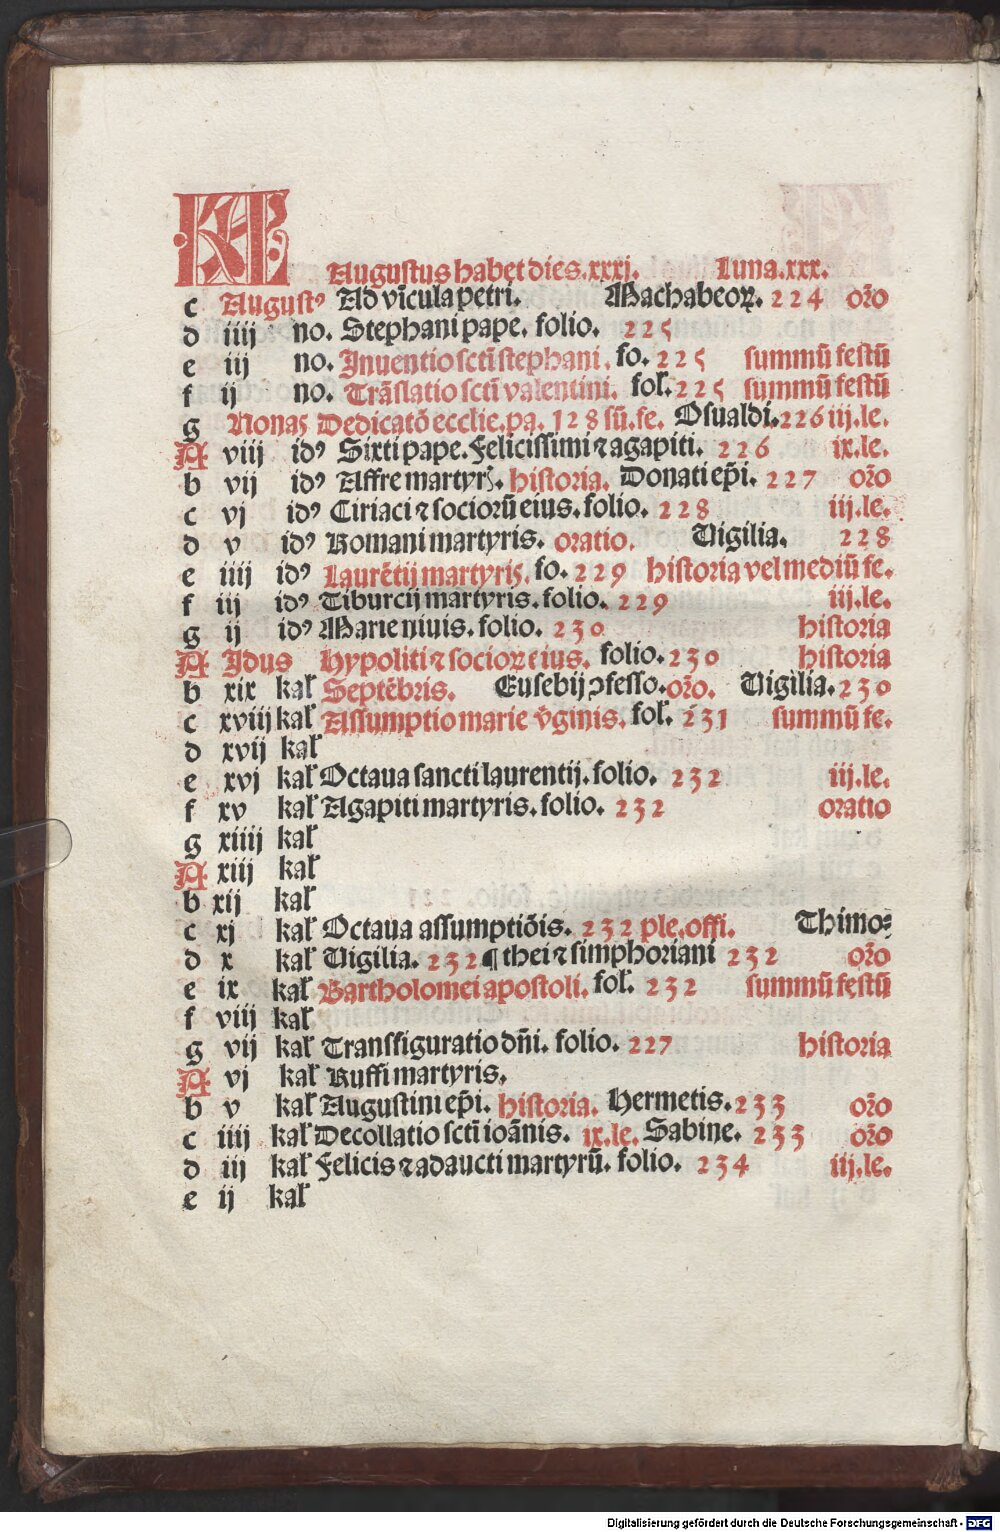 KL Augustus habet dies.xxxj. Luna.xxx.
c Augustꝰ Ad vīcula petri. Machabeoꝝ. 224 oŕo
d iiij no. Stephani pape. folio. 225
e iij no. Inuentio scti stephani. fo. 225 summū festū
f ij no. Trāslatio scti valentini. fol. 225 summū festū
g Nonas Dedicatō ecclie.pa. 128 sū.fe. Osualdi.226 iij.le.
A viij idꝰ Sixti pape. Felicissimi ⁊ agapiti. 226 ix.le.
b vij idꝰ Affre martyrꝭ. historia. Donati ep̄i. 227 oŕo
c vj idꝰ Ciriaci ⁊ socioꝛū eius. folio. 228 iij.le.
d v idꝰ Romani martyris. oratio. Vigilia. 228
e iiij idꝰ Laurētij martyris. fo. 229 historia vel mediū fe.
f iij idꝰ Tiburcij martyris. folio. 229 iij.le.
g ij idꝰ Marie niuis. folio. 230 historia
A Idus Hypoliti ⁊ socioꝝ eius. folio. 230 historia
b xix kal Septēbris. Eusebij ꝯfesso. oŕo. Vigilia. 230
c xviij kal Assumptio marie v̄ginis. fol. 231 summū fe.
d xvij kal
e xvj kal Octaua sancti laurentij. folio. 232 iij.le.
f xv kal Agapiti martyris. folio. 232 oratio
g xiiij kal
A xiij kal
b xij kal
c xj kal Octaua assumptiōis. 232 ple.offi. Thimo⸗
d x kal Vigilia. 232 ¶ thei ⁊ simphoriani 232 oŕo
e ix kal Bartholomei apostoli. fol. 232 summū festū
f viij kal
g vij kal Transfiguratio dn̄i. folio. 227 historia
A vj kal Ruffi martyris.
b v kal Augustini ep̄i. historia. Hermetis. 233 oŕo
c iiij kal Decollatio scti ioānis. ix.le. Sabine. 233 oŕo
d iij kal Felicis ⁊ adaucti martyrū. folio. 234 iij.le.
e ij kal
Digitalisierung gefördert durch die Deutsche Forschungsgemeinschaft - DFG